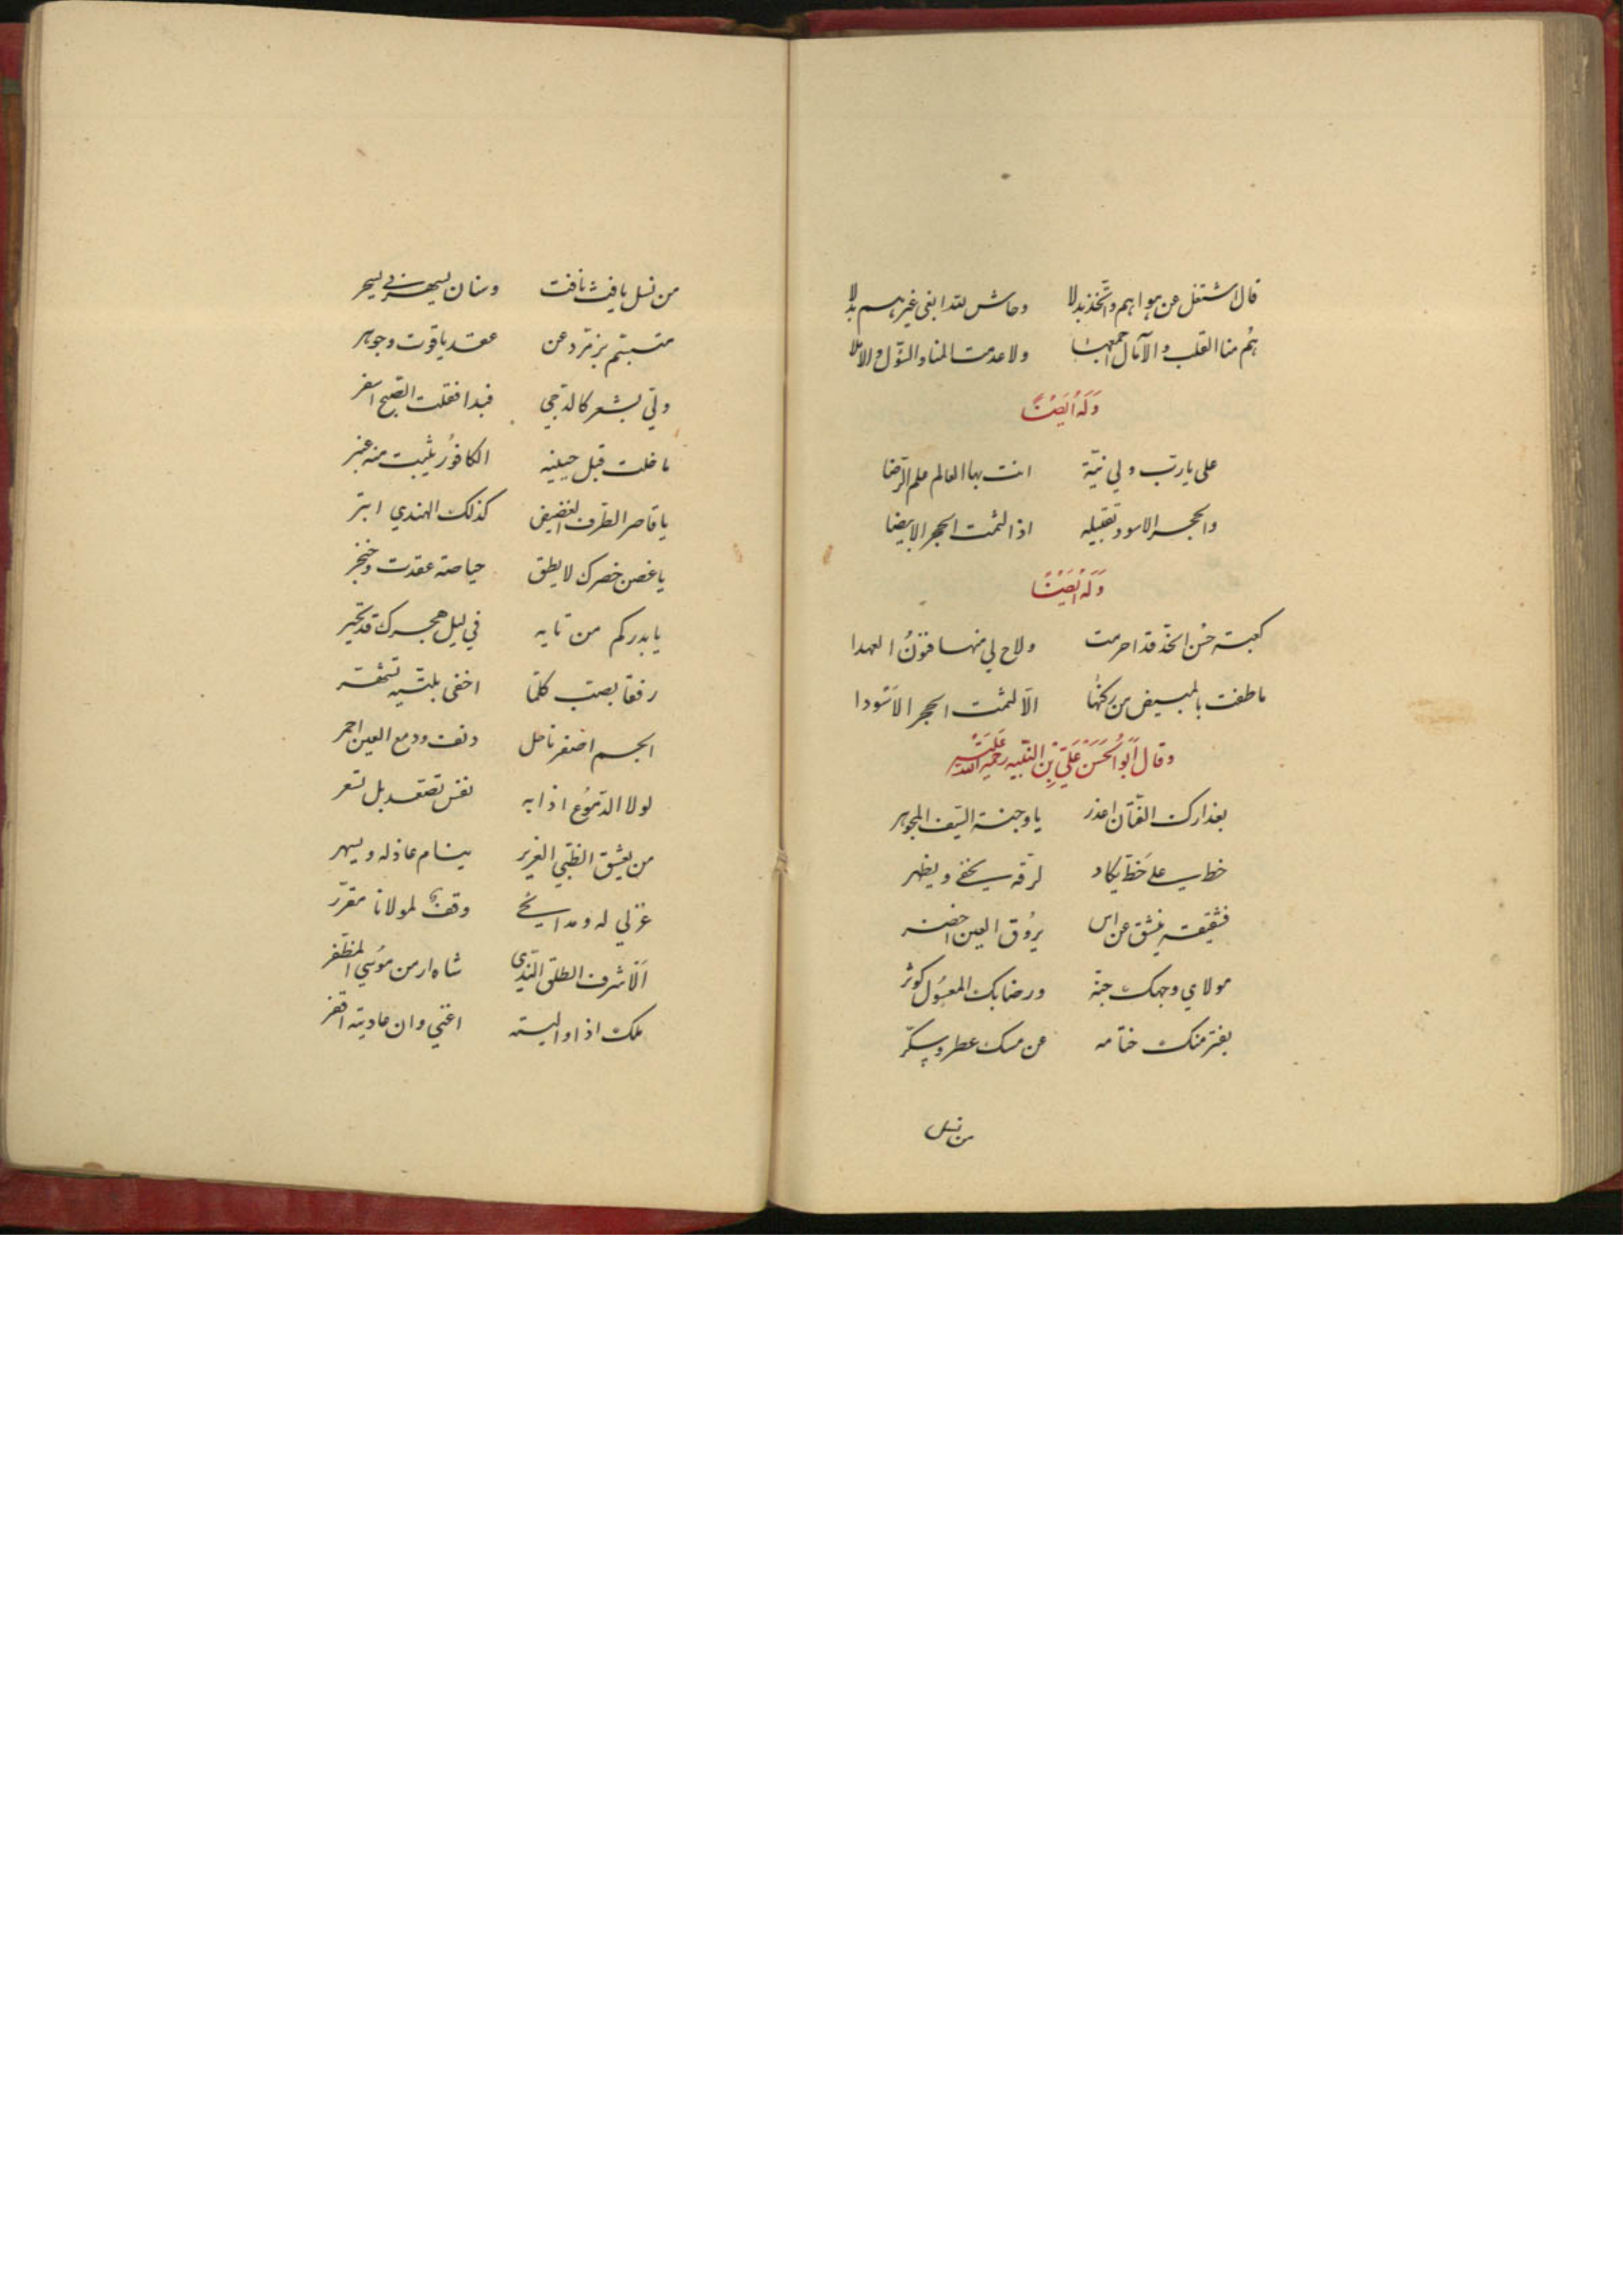 قال اشتغل عن هواهم واتخذ بدلا وحاش لله ابغى غيرهم بدلا
هم منا القلب والآمال اجمعها ولا عدمت المنا والسؤل والاملا
وَلَهُ اَيضًا
على يارب ولي نيّة انت بها العالم علم الرّضا
والحجر الاسود تقبيله اذا لثمت الحجر الابيضا
وَلَهُ اَيضًا
كعبة حسن الخدّ قد احرمت ولاح لي منها العهدا
ما طفت بالمبيض من ركنها الّا لثمت الحجر الاَسْودا
وقال اَبُو الحَسَن عَلِيّ بْنِ النّبيه رحمة الله عَلَيْه
بعذارك الفتّان اعذر يا وجنة السّيف المجوهر
خط على خَدّ يكاد لرقّه يخفى ويظهر
فشقيقه ينشق عن اس يرُوق العين اخضر
مولاي وجهك جنّة ورضابك المعسُول كوثر
يفتر منك ختامه عن مسك عطر وسكّر
من نسل
من نسل يافث نافث وسنان يسهرني يسحر
متبسّم بزمرّد عن عقد ياقوت وجوهر
ولّي بشعر كالدّجي فبدا فقلت الصّبح اسفر
ما خلت قبل جبينه الكافُور ينبت منه عنبر
يا قاصر الطرف الغضيض كذلك الهندي ابتر
يا غصن خصرك لا يطق حياصة عقدت وخنجر
يا بدركم من تايه في ليل هجرك قد تحيّر
رفقا بصب كلّما اخفى بلّيته تشهّر
الجسم اصفر ناحل دنف ودمع العين احمر
لولا الدّمُوع اذا به نفس تصّعد بل تسعر
من يعشق الظّبي الغرير ينام عاذله ويسهر
غزلي له ومدايحي وقف لمولانا مقرّر
اَلْاشرف الطلق النّدي شاه ارمن مُوسي المظفّر
ملك اذا واليته اغني وان عاديته افقر